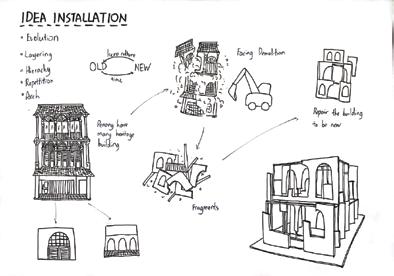 IDEA INSTALLATION
• Evolution
• Layering
• Hierarchy
• Repetition
• Arch
OLD
NEW
time
Facing Demolition
Penang have
many heritage
building
Fragments
Repair the building
to be new